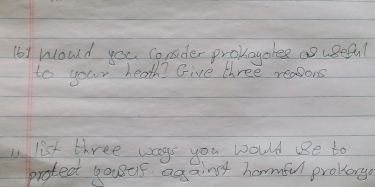 16) Would you consider prokayotes as useful
to your heath? Give three reasons
11. list three ways you would use to
protect yourself against harmful prokaryo